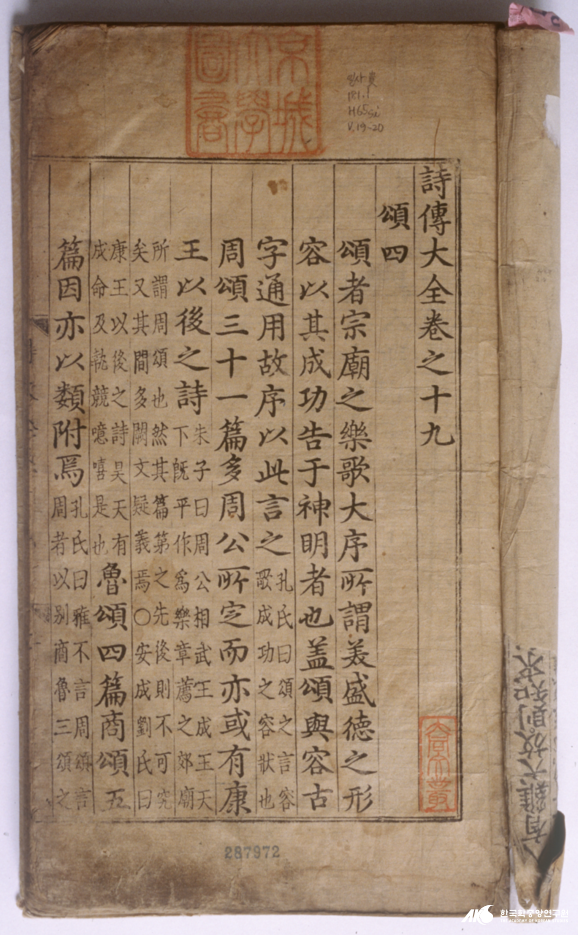 京城
大學
圖書
181.1
H65si
V.19-20
詩傳大全卷之十九
頌四
頌者宗廟之樂歌大序所謂美盛德之形
容以其成功告于神明者也盖頌與容古
字通用故序以此言之孔氏曰頌之言容
歌成功之容狀也
周頌三十一篇多周公所定而亦或有康
王以後之詩朱子曰周公相武王成王天
下旣平作爲樂章薦之郊廟
所謂周頌也然其篇第之先後則不可究
矣又其間多闕文疑義焉○安成劉氏曰
康王以後之詩昊天有
成命及執競噫嘻是也魯頌四篇商頌五
篇因亦以類附焉孔氏曰雅不言周頌言
周者以别商魯三頌之
287972
AKS 한국학중앙연구원